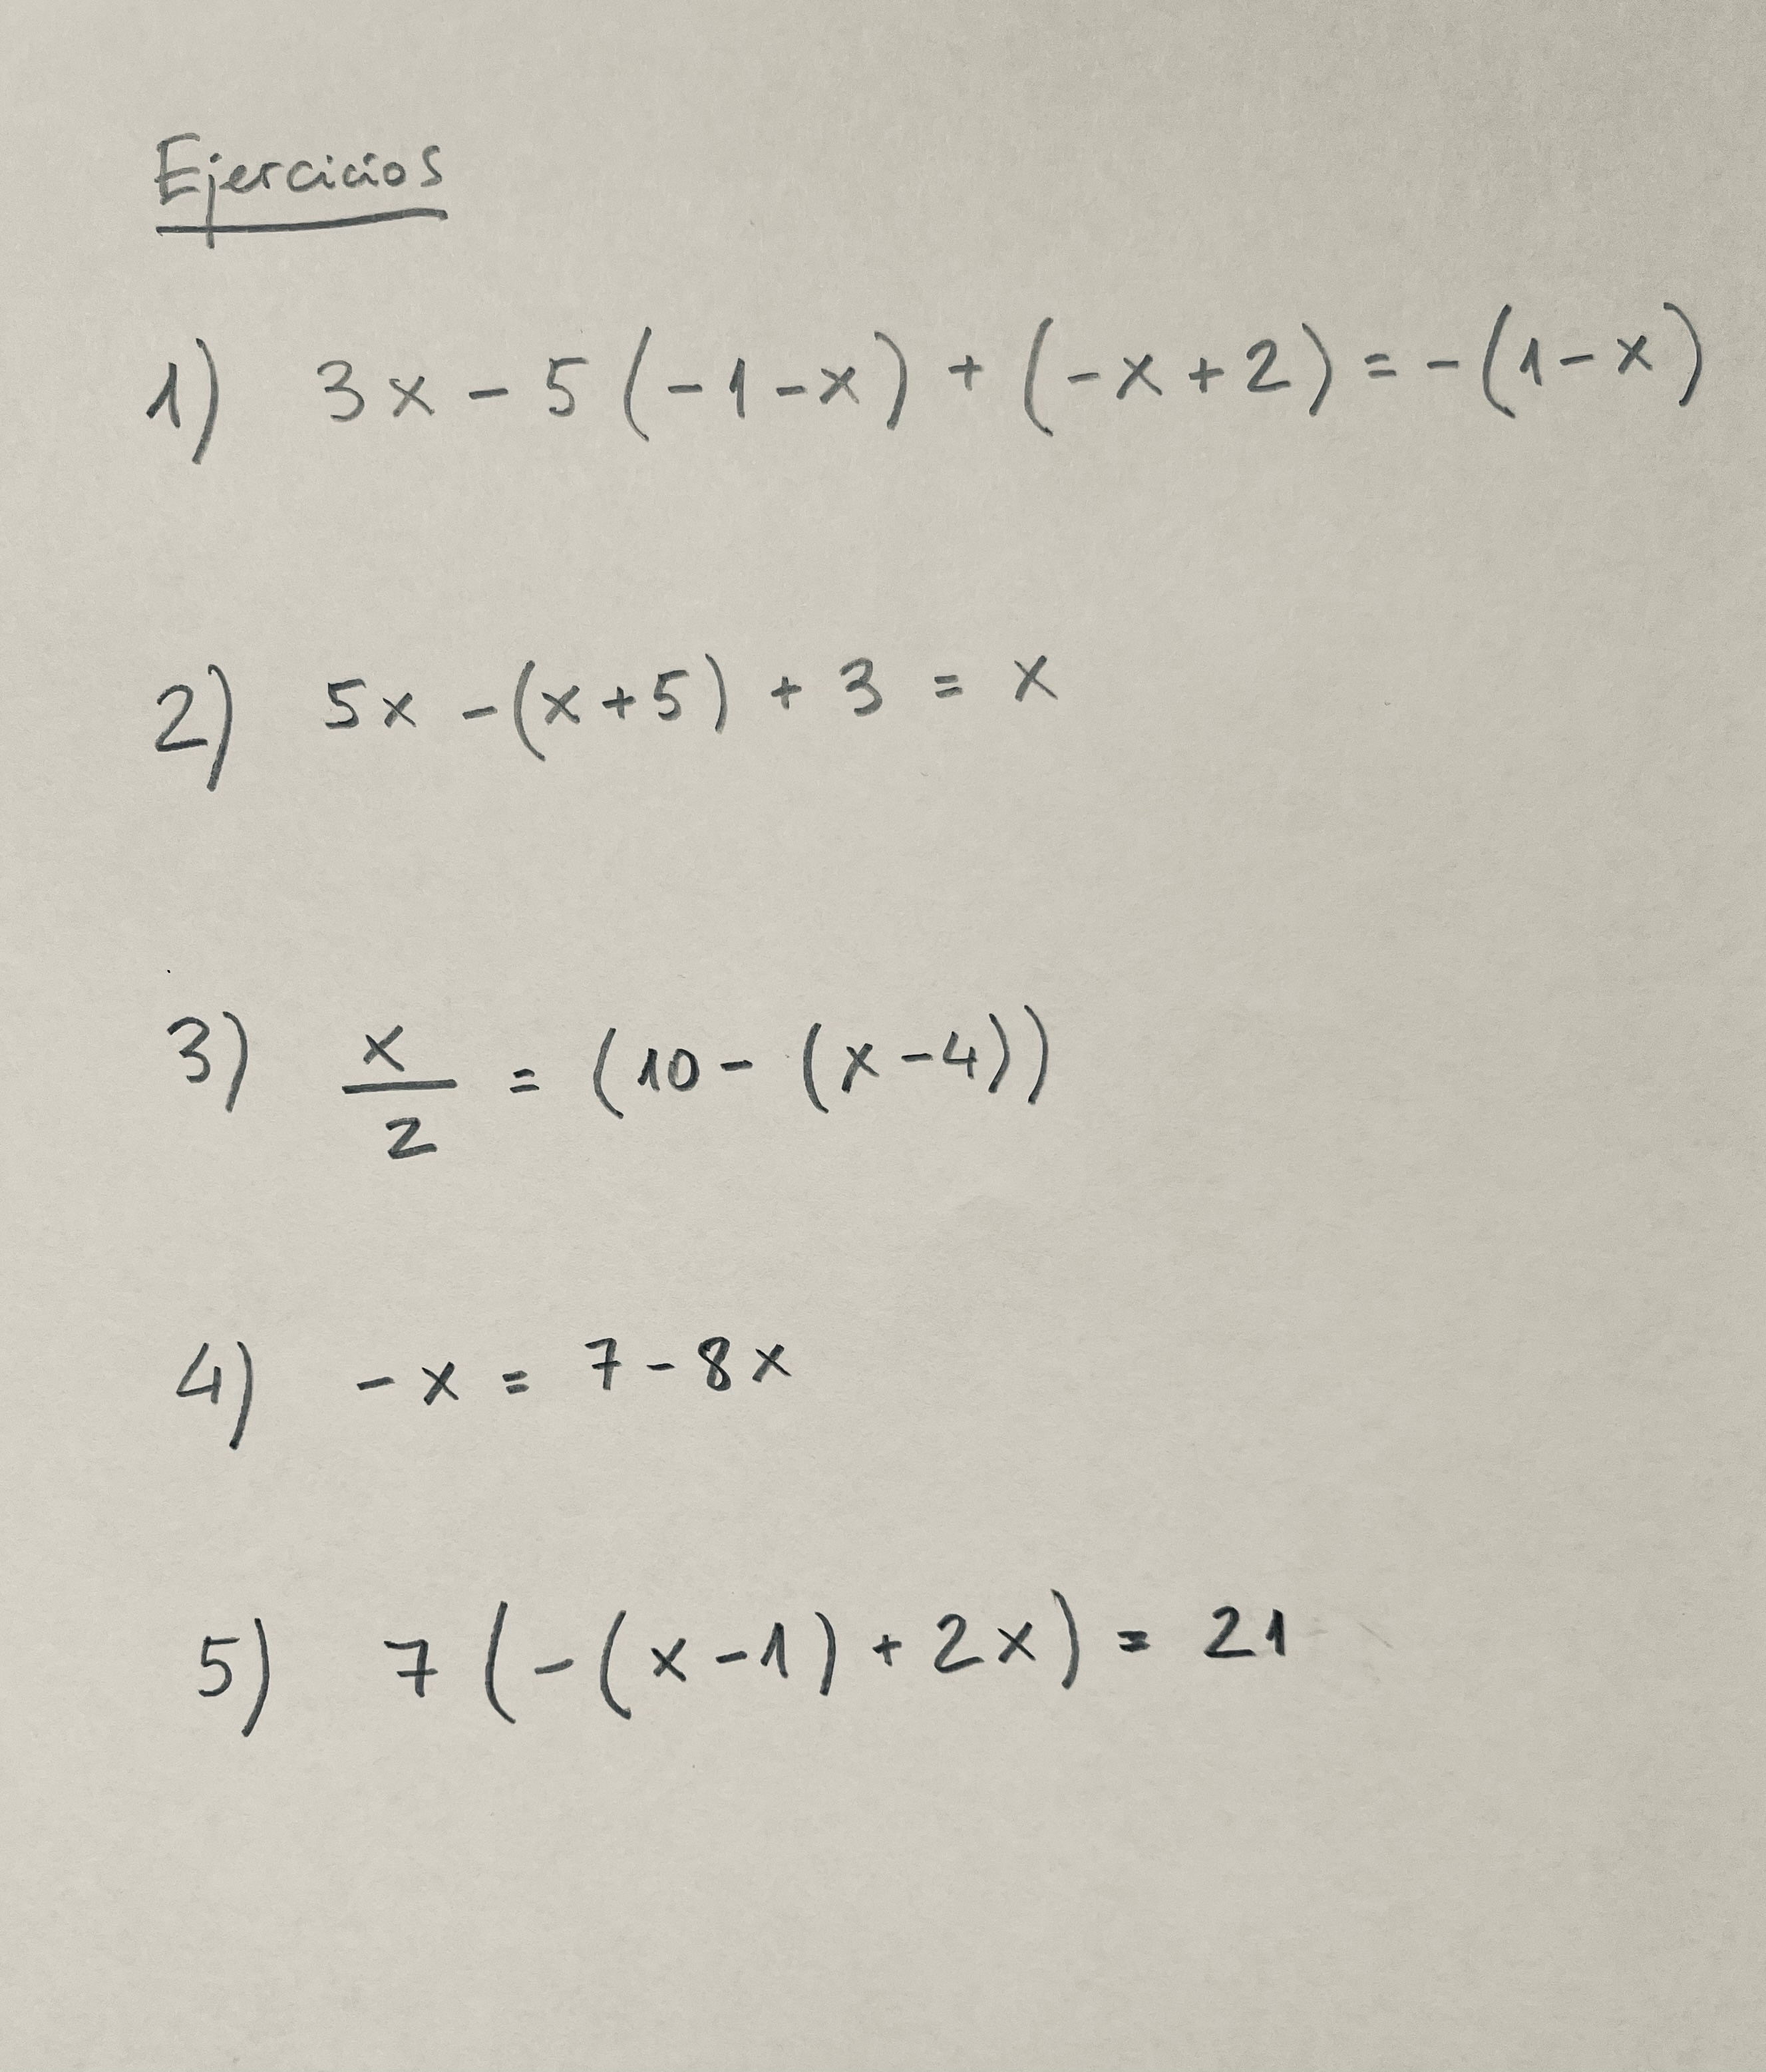 Ejercicios
1) 3x - 5(-1-x) + (-x+2) = -(1-x)
2) 5x -(x+5) + 3 = x
3) x/2 = (10 - (x-4))
4) -x = 7-8x
5) 7(-(x-1)+2x) = 21